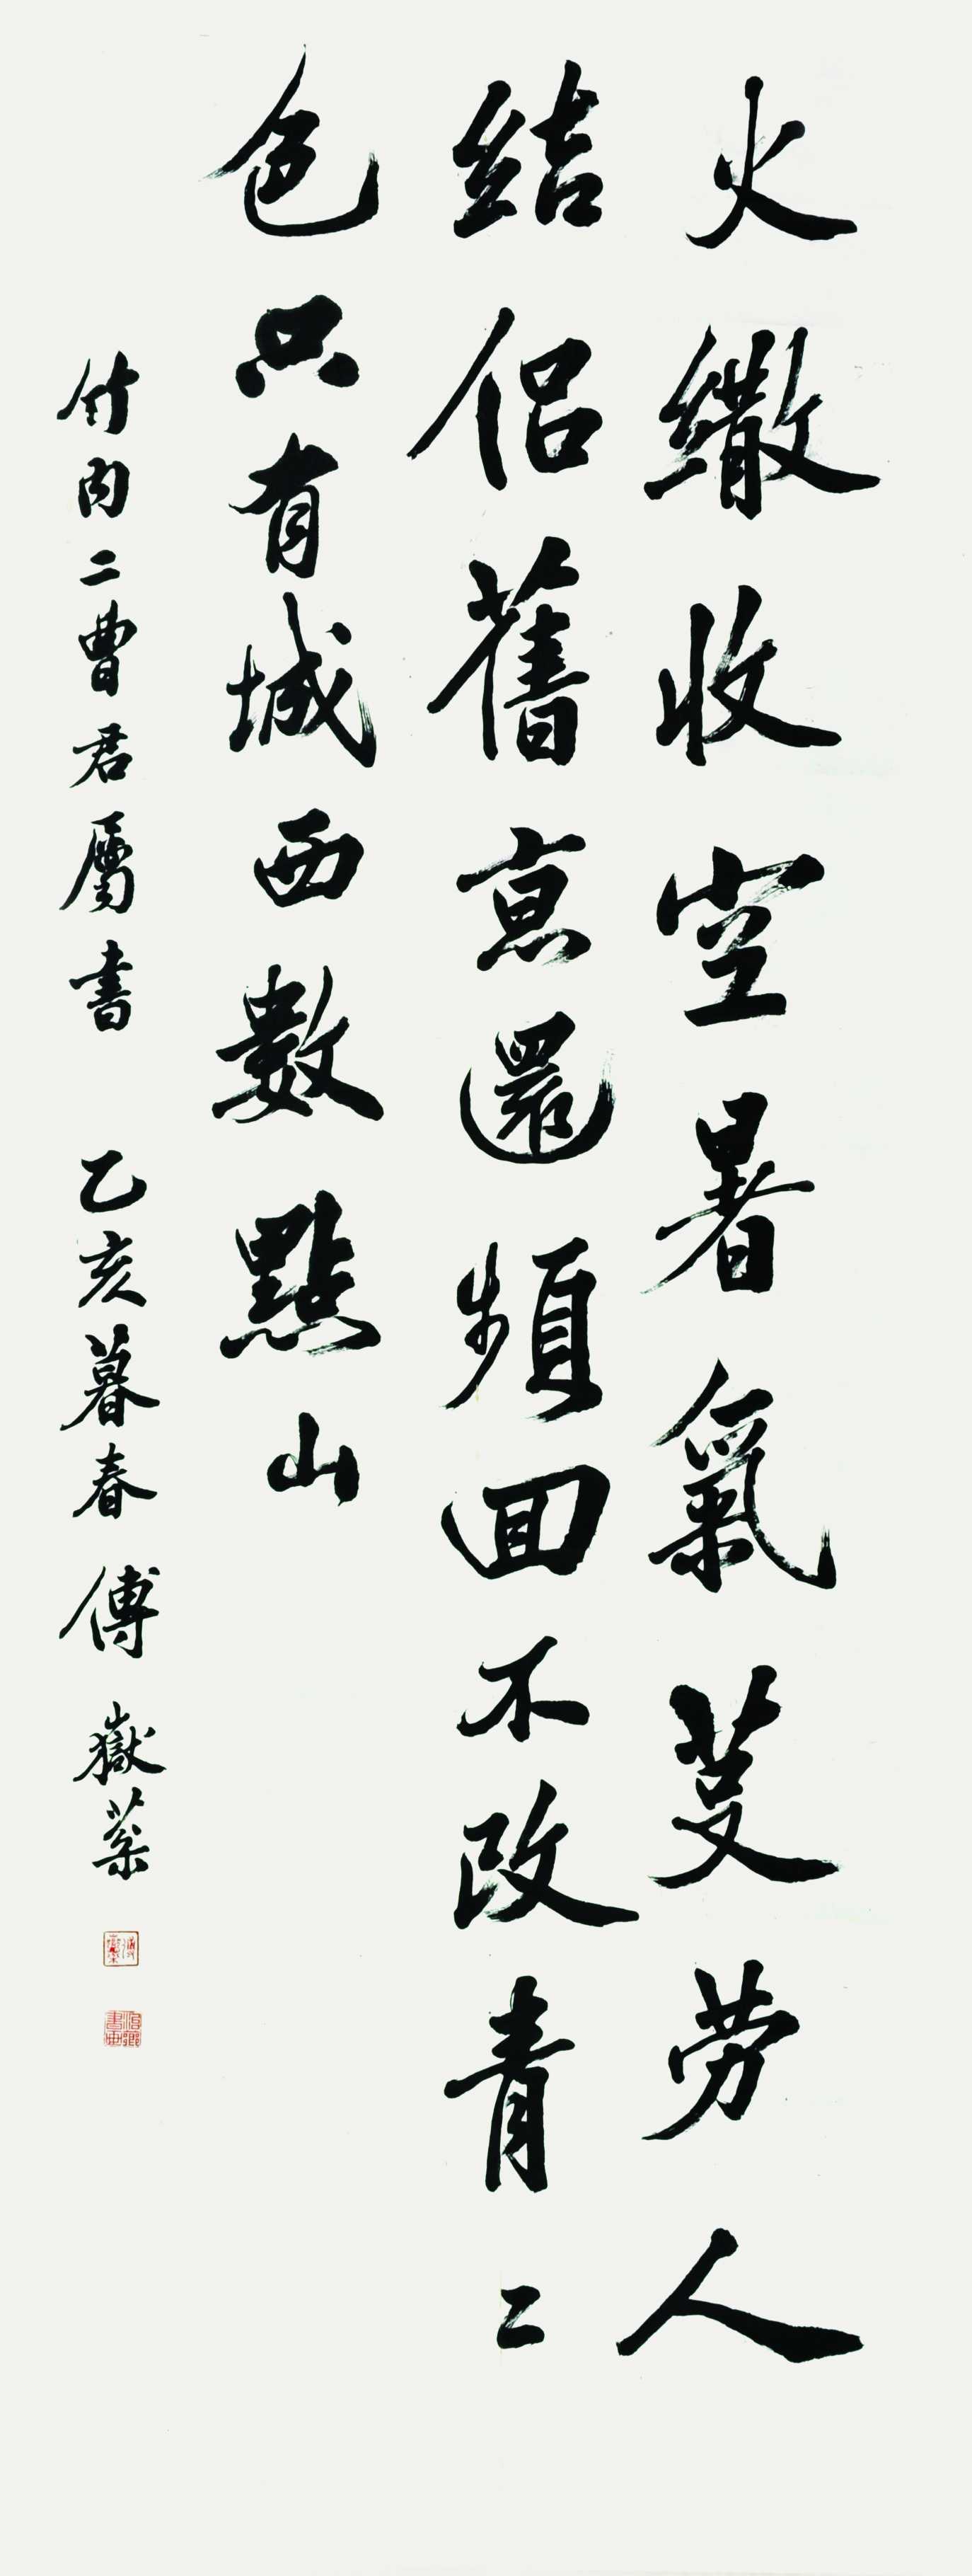 火繖收空暑氣芟劳人
結侣舊亰還頻囬不改青二
色只有城西數點山
竹内二曹君屬書 乙亥暮春 傅嶽棻
傅嶽棻